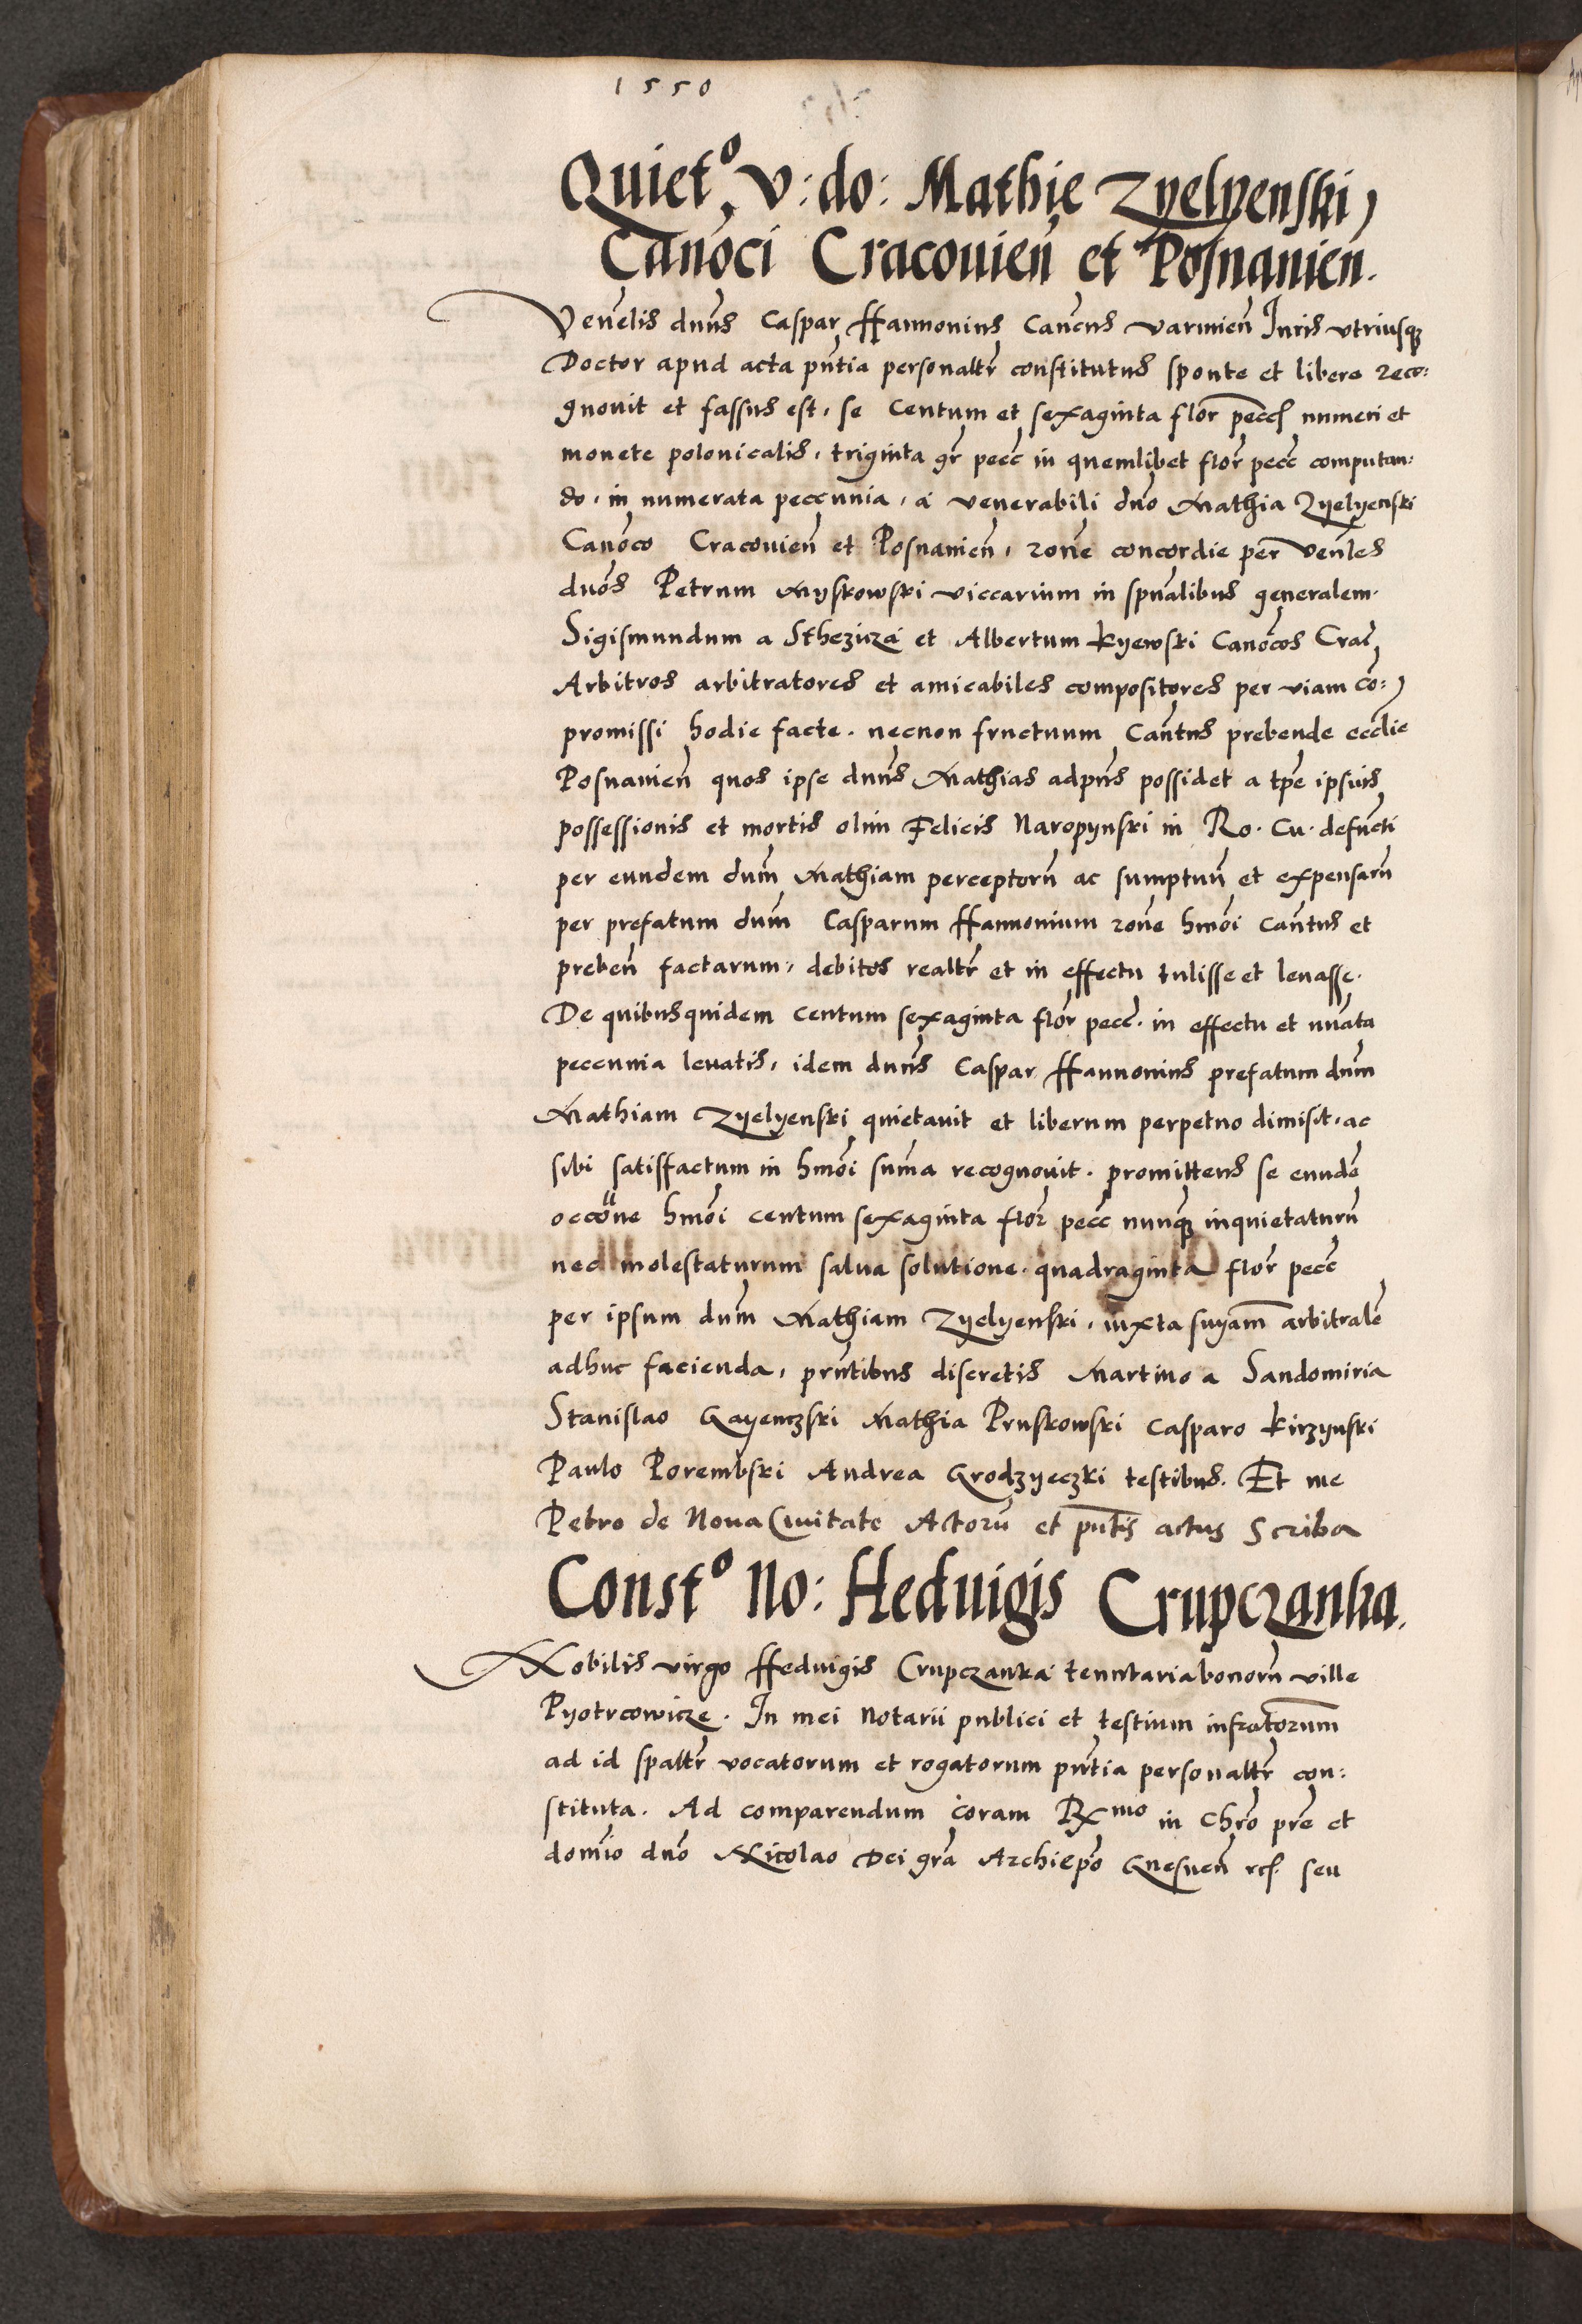 1550
Quiet⁰ V: do: Mathie Zyelyenski
Canoci Cracouien̄ et Posnanien.
Venēlis dnūs Caspar Hannonius Canc̄us varmien̄ Iuris vtriusq̨
Doctor apud acta pn̄tia personaltr̄ constitutus sponte et libere reco:
gnouit et fassus est, se Centum et sexaginta flor̄ pecc̄ numeri et
monete polonicalis, triginta gr̄ pecc̄ in quemlibet flor̄ pecc̄ computan:
do, in numerata peccunia, a venerabili dn̄o Mathia Zyelyenski
Canōco Cracouien̄ et Posnanien̄, rōne concordie per Venl̄es
dnōs Petrum Myskowski viccarium in spūalibus generalem.
Sigismundum a Sthezicza et Albertum Kyewski Canōcos Crac̄
Arbitros arbitratores et amicabiles compositores per viam cō:
promissi hodie facte. necnon fructuum Can̄tus prebende eccl̄ie
Posnanien̄ quos ipse dnūs Mathias adpn̄s possidet a tp̄e ipsius
possessionis et mortis olim Felicis Naropynski in Ro. Cu. defuncti
per eundem dnm̄ Mathiam perceptorū ac sumptuū et expensarū
per prefatum dnm̄ Casparum Hannonium rōne hmōi Can̄tus et
preben̄ factarum, debitos realtr̄ et in effectu tulisse et leuasse.
De quibusquidem Centum sexaginta flor̄ pecc̄. in effectu et nūata
peccunia leuatis, idem dnūs Caspar Hannonius prefatum dnm̄
Mathiam Zyelyenski quietauit et liberum perpetuo dimisit, ac
sibi satisfactum in hmōi sum̄a recognouit. promittens se eundē
occōne hmōi centum sexaginta flor̄ pecc̄ nunq̨ inquietaturū
nec molestaturum salua solutione. quadraginta flor̄ pecc̄
per ipsum dnm̄ Mathiam Zyelyenski, iuxta sniam̄ arbitralē
adhuc facienda, prn̄tibus discretis Martino a Sandomiria
Stanislao Gayenczski Mathia Pruskowski Casparo Kirzynski
Paulo Porembski Andrea Grodzyeczki testibus. Et me
Petro de Noua Ciuitate Actorū et pn̄tis actus Scriba
Const⁰ No: Heduigis Crupczanka.
Nobilis virgo Heduigis Crupczanka tenutaria bonorū ville
Pyotrcowicze. In mei Notarii publici et testium infratorum̄
ad id spaltr̄ vocatorum et rogatorum pn̄tia personaltr̄ con:
stituta. Ad comparendum coram Rx̄mo in Chrō prē et
domīo dnō Nicolao Dei grā Archiepō Gnesnen̄ rc̄. seu